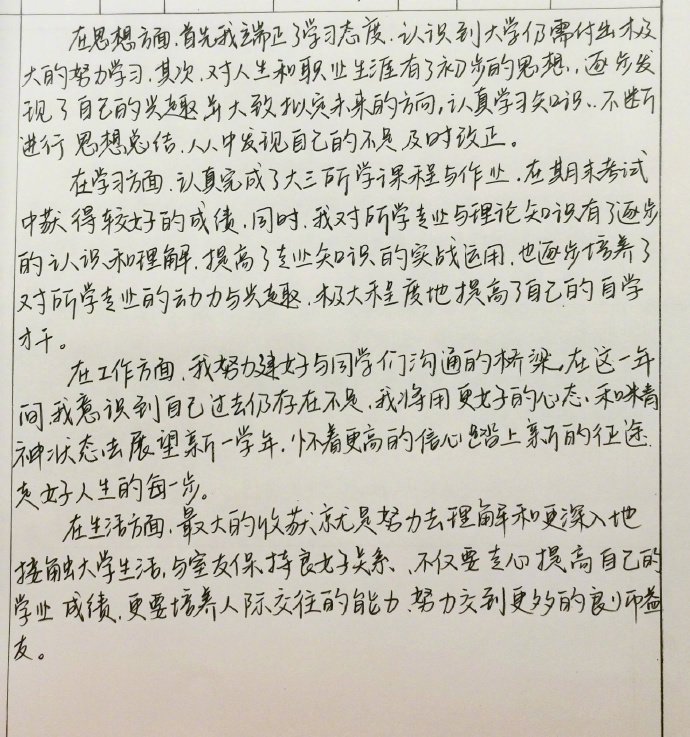 在思想方面,首先我端正了学习态度,认识到大学仍需付出极
大的努力学习,其次,对人生和职业生涯有了初步的思想,逐步发
现了自己的兴趣并大致拟定未来的方向,认真学习知识,不断
进行思想总结,从中发现自己的不足及时改正。
在学习方面,认真完成了大三所学课程与作业,在期末考试
中获得较好的成绩,同时,我对所学专业与理论知识有了逐步
的认识和理解,提高了专业知识的实战运用,也逐步培养了
对所学专业的动力与兴趣,极大程度地提高了自己的自学
才干。
在工作方面,我努力建好与同学们沟通的桥梁,在这一年
间,我意识到自己过去仍存在不足,我将用更好的心态、和精
神状态去展望新一学年,怀着更高的信心踏上新的征途,
走好人生的每一步。
在生活方面,最大的收获就是努力去理解和更深入地
接触大学生活,与室友保持良好关系、不仅要专心提高自己的
学业成绩,更要培养人际交往的能力,努力交到更多的良师益
友。